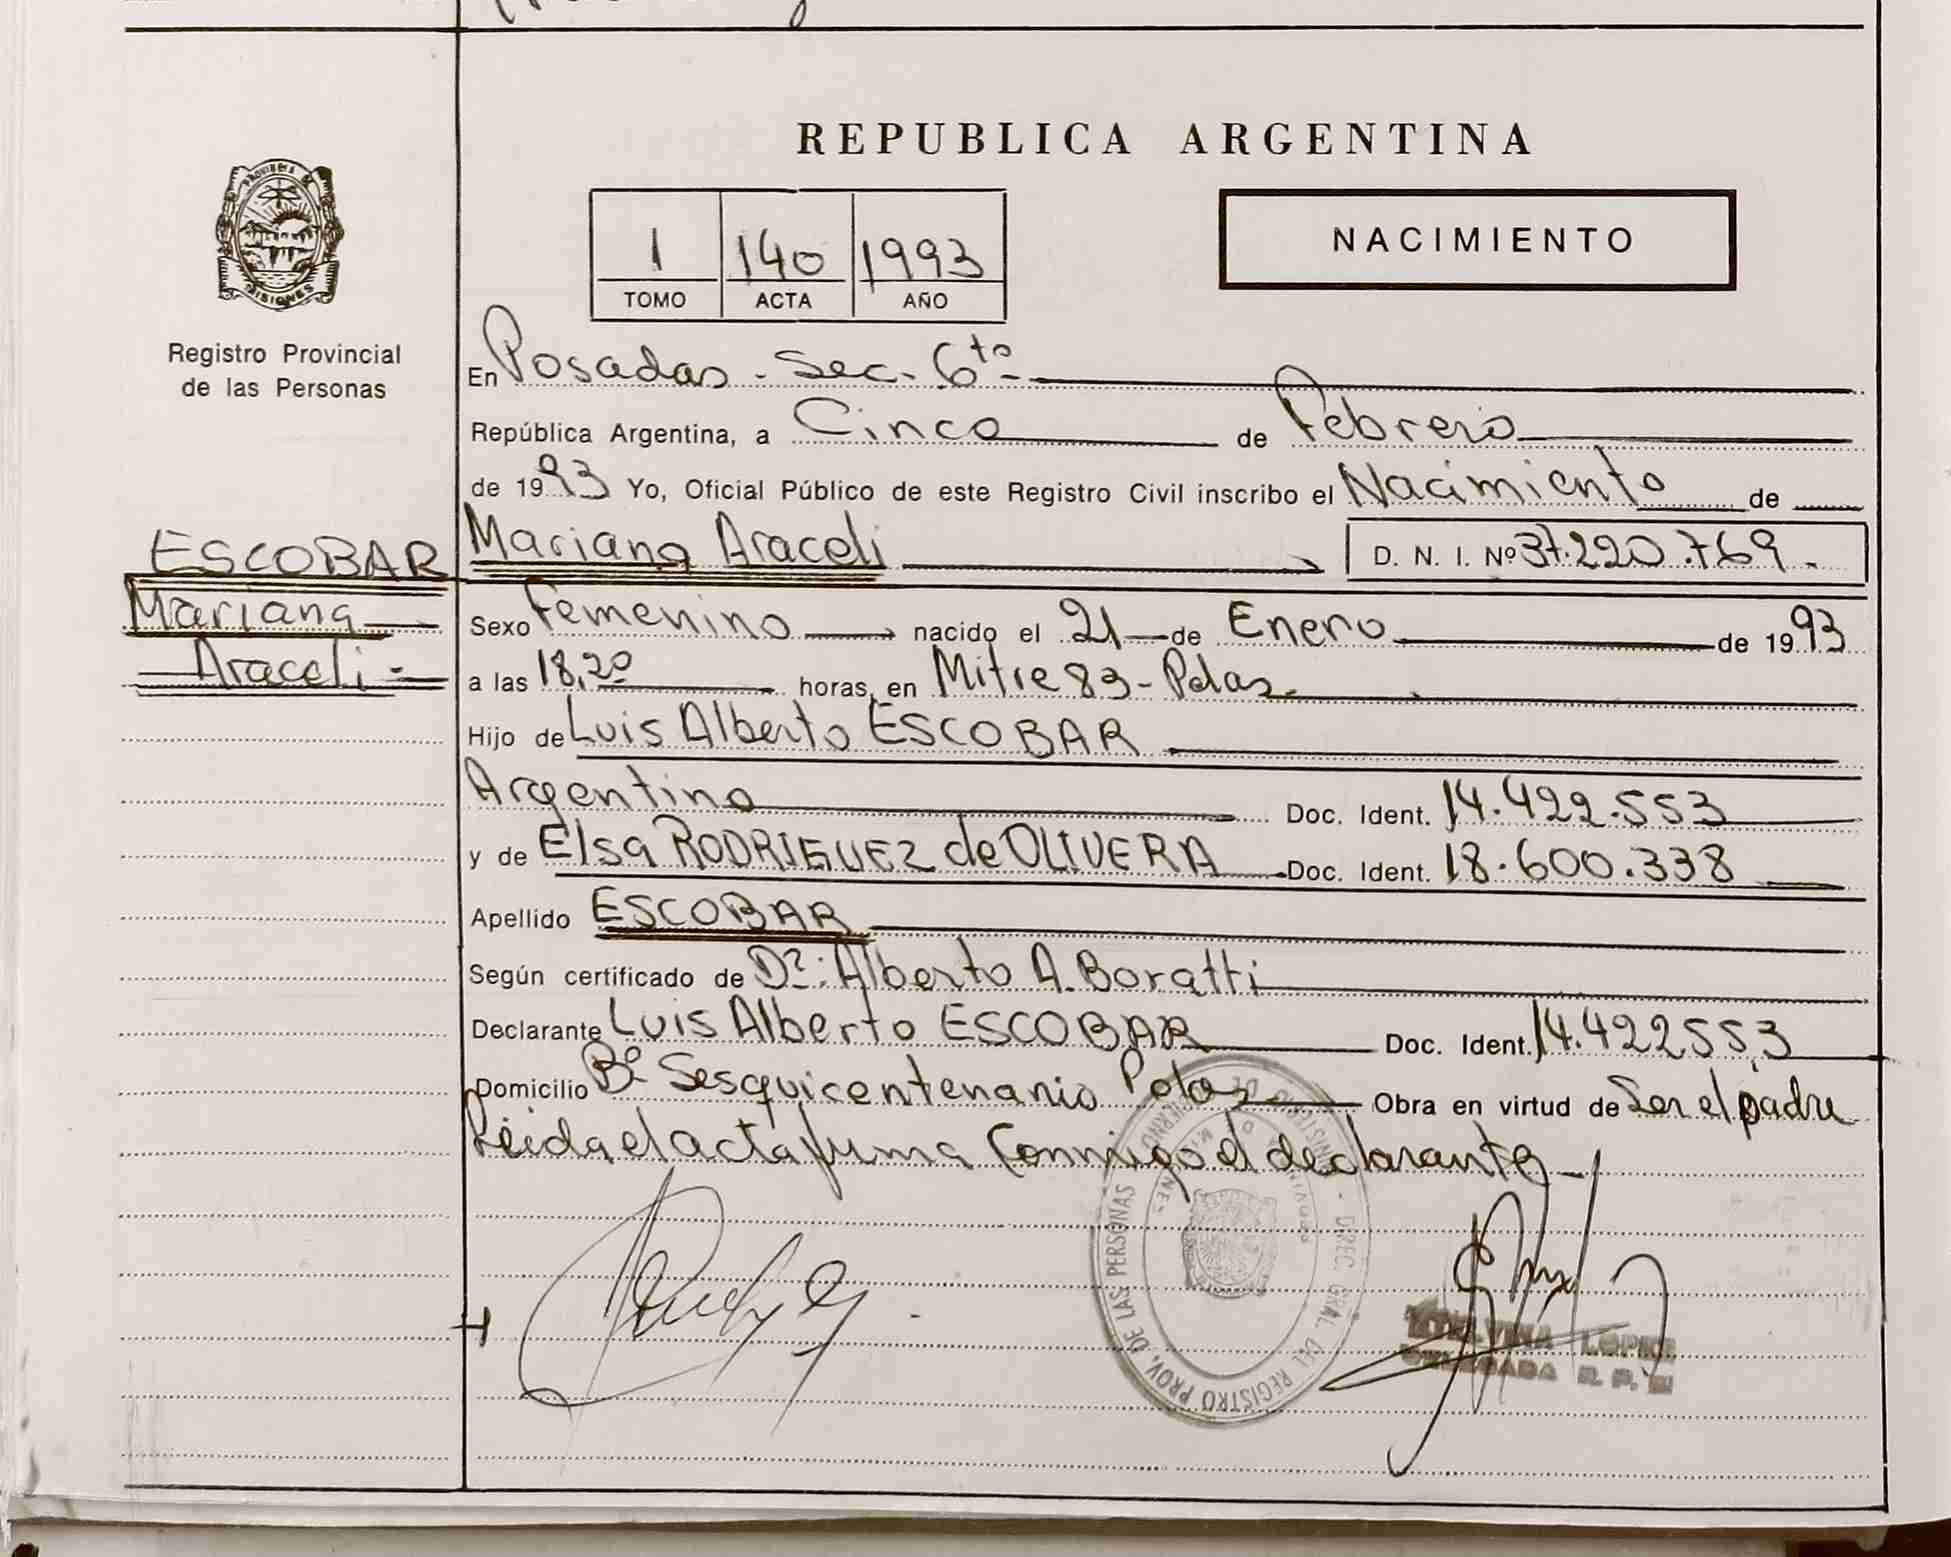 REPUBLICA ARGENTINA
NACIMIENTO
1 140 1993
TOMO ACTA AÑO
PROVINCIA DE
MISIONES
Registro Provincial
de las Personas
ESCOBAR
Mariana
Araceli -
En Posadas - Sec. 6to -
República Argentina, a Cinco de Febrero
de 1993 Yo, Oficial Público de este Registro Civil inscribo el Nacimiento de
Mariana Araceli D. N. I. Nº 37.220.769.
Sexo Femenino nacido el 21 de Enero de 1993
a las 18,20 horas, en Mitre 83 - Pdas.
Hijo de Luis Alberto ESCOBAR
Argentino Doc. Ident. 14.422.553
y de Elsa RODRIGUEZ de OLIVERA Doc. Ident. 18.600.338
Apellido ESCOBAR
Según certificado de Dr.: Alberto A. Boratti
Declarante Luis Alberto ESCOBAR Doc. Ident. 14.422553
Domicilio Bº Sesquicentenario Pdas Obra en virtud de Ser el padre
Leida el acta firma Conmigo el declarante -
DIREC. GRAL. DEL REGISTRO PROV. DE LAS PERSONAS
LOPEZ
DELEGADA R. P.